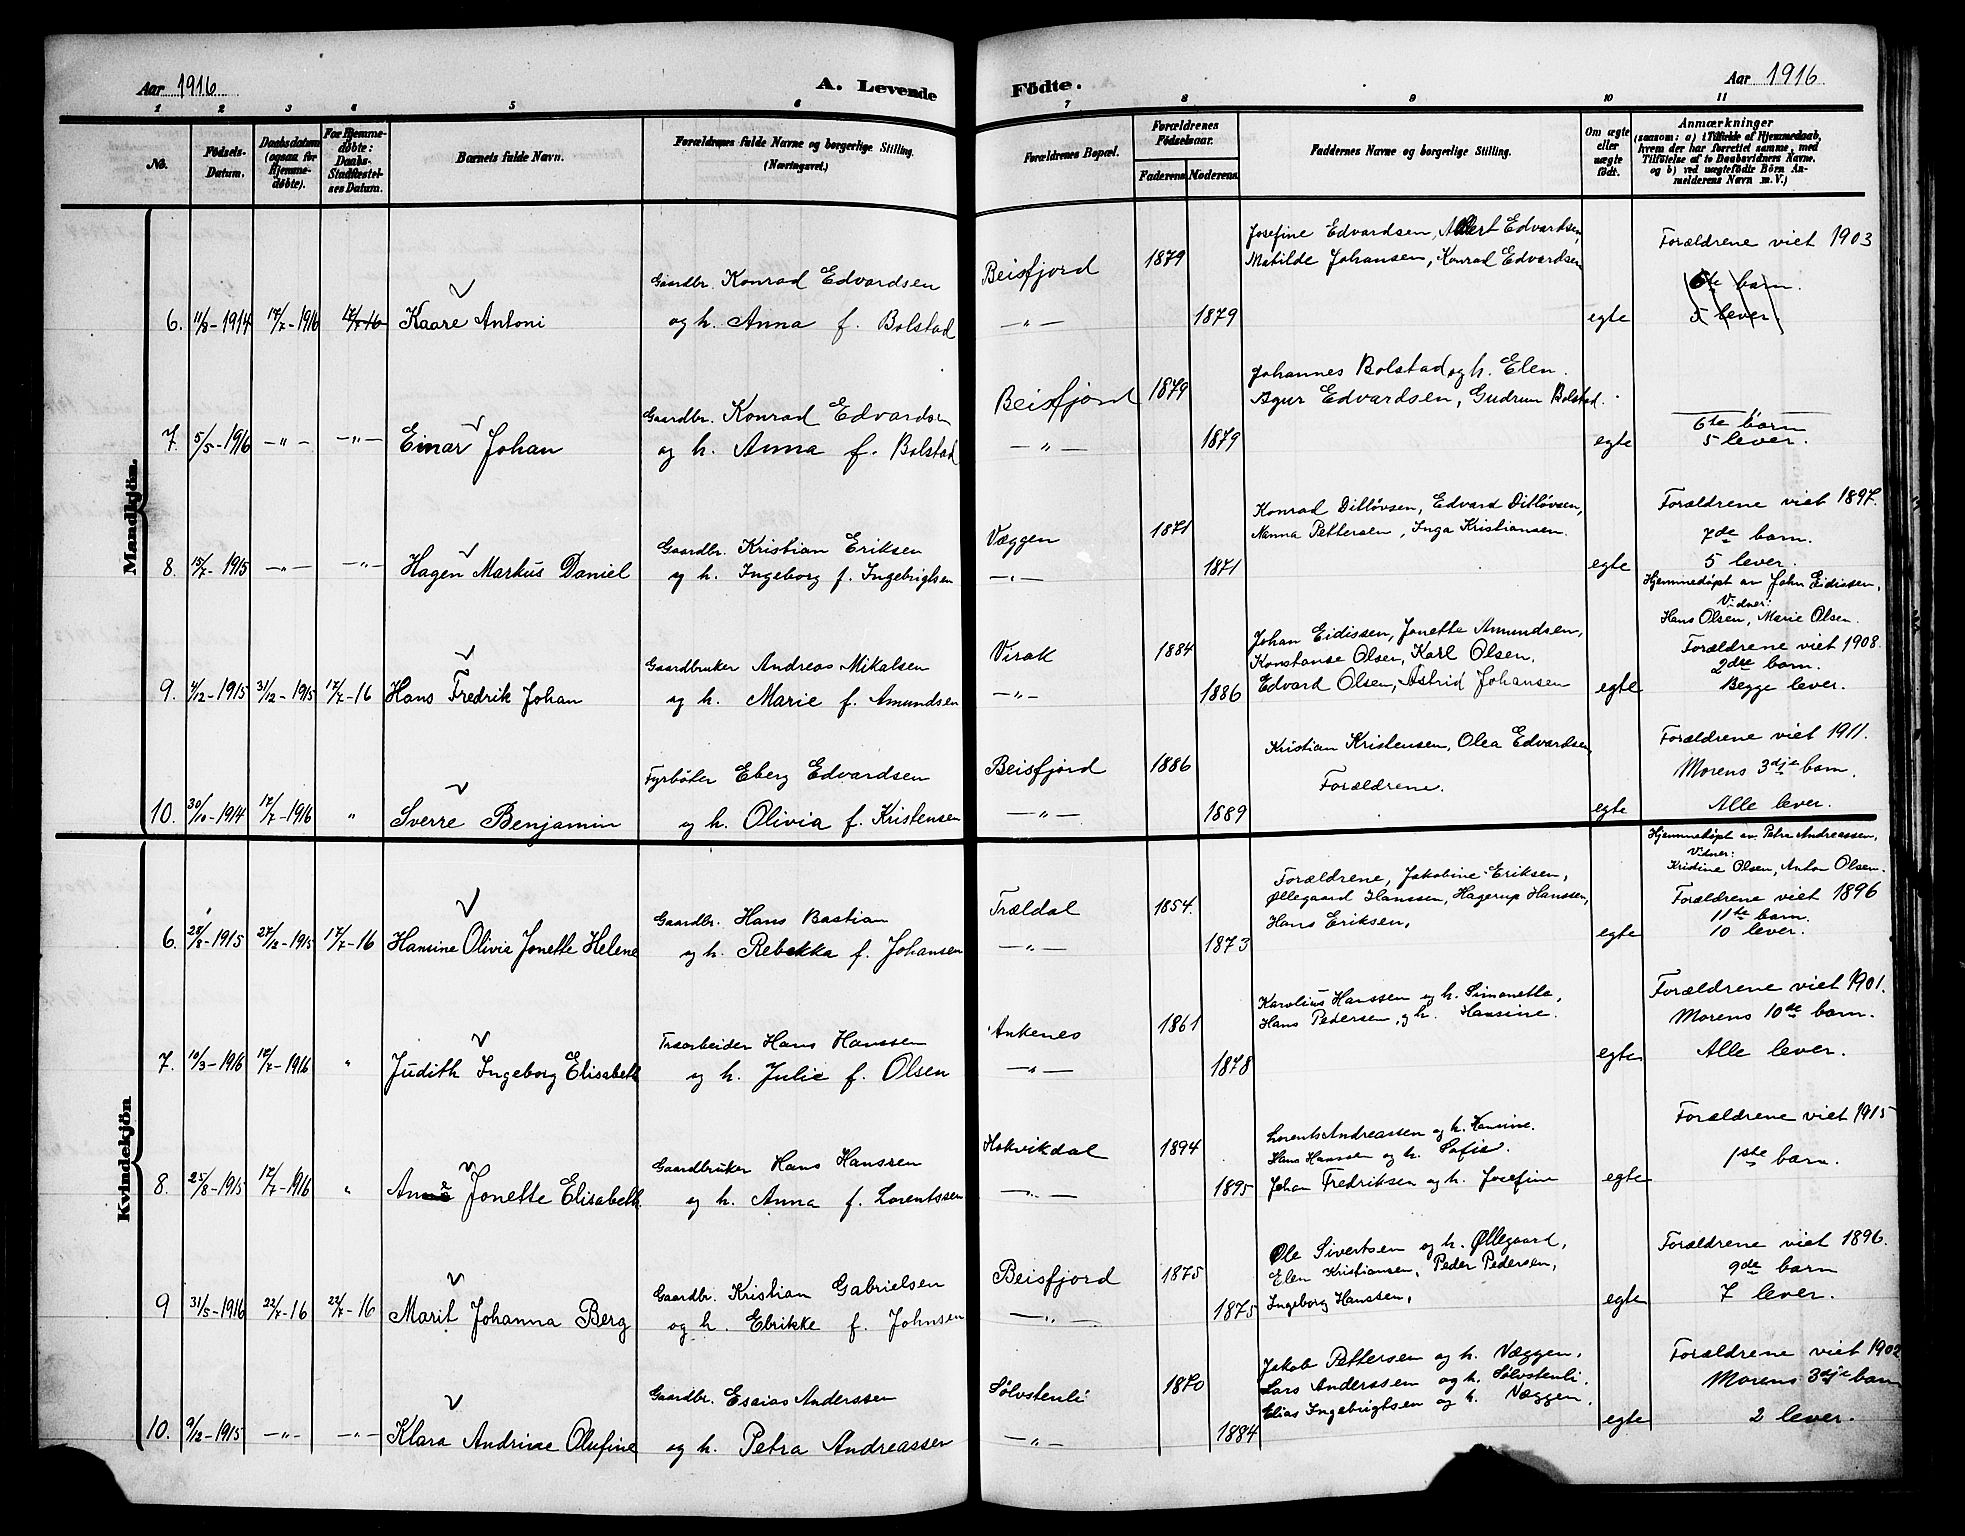 Aar 1916
A. Levende
Födte.
Aar 1916
1 2 3 4 5 6 7 8 9 10 11
No.
Födsels-
Datum.
Daabsdatum
(ogsaa for
Hjemme-
döbte).
For Hjemme-
döbte:
Daabs-
Stadfæstel-
ses Datum.
Barnets fulde Navn.
Forældrenes fulde Navne og borgerlige Stilling.
(Næringsvei.)
Forældrenes Bopæl.
Forældrenes
Födselsaar.
Faderens
Moderens
Faddernes Navne og borgerlige Stilling.
Om ægte
eller
uægte
födt.
Anmærkninger
(saasom: a) i Tilfælde af Hjemmedaab,
hvem der har forrettet samme, med
Tilföielse af to Daabsvidners Navne,
og b) ved uægtefödte Börn An-
melderens Navn m. V.)
Mandkjön.
6. 11/8-1914 17/7-1916 17/7-16 Kaare Antoni
Gaardbr. Konrad Edvardsen
og h. Anna f. Bolstad
Beisfjord 1879
—"— 1879
Josefine Edvardsen, Albert Edvardsen,
Matilde Johansen, Konrad Edvardsen
egte
Forældrene viet 1903
6te barn.
5 lever.
7. 5/5-1916 —"— —"— Einar Johan
Gaardbr. Konrad Edvardsen
og h. Anna f. Bolstad
Beisfjord 1879
—"— 1879
Johannes Bolstad og h. Elen.
Agur Edvardsen, Gudrun Bolstad.
egte
6te barn
5 lever.
8. 15/7-1915 —"— —"— Hagen Markus Daniel
Gaardbr. Kristian Eriksen
og h. Ingeborg f. Ingebrigtsen
Væggen 1871
—"— 1871
Konrad Ditløvsen, Edvard Ditløvsen,
Nanna Pettersen, Inga Kristiansen.
egte
Forældrene viet 1897.
7de barn.
5 lever.
9. 4/12-1915 31/12-1915 17/7-16 Hans Fredrik Johan
Gaardbruker Andreas Mikalsen
og h. Marie f. Amundsen
Virak 1884
—"— 1886
Johan Eidissen, Jonette Amundsen,
Konstanse Olsen, Karl Olsen,
Edvard Olsen, Astrid Johansen
egte
Hjemmedøpt av John Eidissen,
Vidner:
Hans Olsen, Marie Olsen.
Forældrene viet 1908.
2dre barn.
Begge lever.
10. 30/10-1914 17/7-1916 " Sverre Benjamin
Fyrbøter Eberg Edvardsen
og h. Olivia f. Kristensen
Beisfjord 1886
—"— 1889
Kristian Kristensen, Olea Edvardsen
Forældrene.
egte
Forældrene viet 1911.
Morens 3dje barn.
Alle lever.
Kvindekjön
6. 1915 1915 17/7-16 Hansine Olivie Jonette Helene
Gaardbr. Hans Bastian
og h. Rebekka f. Johansen
Trældal 1854.
—"— 1873
Forældrene, Jakobine Eriksen,
Øllegaard Hanssen, Hagerup Hanssen,
Hans Eriksen,
egte
Hjemmedøpt av Petra Andreassen,
Vidner:
Kristine Olsen, Anton Olsen.
Forældrene viet 1896
11te barn.
10 lever.
7. 10/3-1916 1916 " Judith Ingeborg Elisabeth
Træarbeider Hans Hanssen
og h. Julie f. Olsen
Ankenes 1861
—"— 1878
Karolius Hanssen og h. Simonette,
Hans Pedersen, og h. Hansine.
egte
Forældrene viet 1901.
Morens 10de barn.
Alle lever.
8. 25/8-1915 17/7-1916 " Anne Jonette Elisabeth
Gaardbruker Hans Hanssen
og h. Anna f. Lorentssen
Hakvikdal 1894
—"— 1895
Lorents Andreassen og h. Hansine.
Hans Hanssen og h. Sofie.
Johan Fredriksen og h. Josefine
egte
Forældrene viet 1915
1ste barn.
9 31/5-1916 22/7-16 22/7-16 Marit Johanna Berg
Gaardbr. Kristian Gabrielsen
og h. Ebrikke f. Johnsen
Beisfjord 1875
—"— 1875
Ole Sivertsen og h. Øllegaard,
Elen Kristiansen, Peder Pedersen,
Ingeborg Hanssen,
egte
Forældrene viet 1896.
9de barn
7 lever.
10. 9/12-1915 —"— —"— Klara Andrine Olufine
Gaardbr. Esaias Anderssen
og h. Petra Andreassen
Sølvstenli 1870
—"— 1884
Jakob Pettersen og h. Væggen.
Lars Anderssen og h. Sølvstenli.
Elias Ingebrigtsen og h. Væggen.
egte
Forældrene viet 1902
Morens 3dje barn
2 lever.